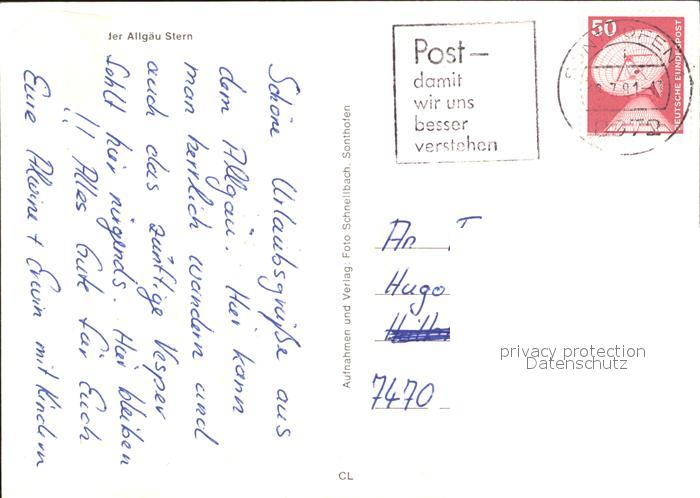 der Allgäu Stern
Schöne Urlaubsgrüße aus
dem Allgäu. Hier kann
man herrlich wandern und
auch das zünftige Vesper
fehlt hier nirgends. Hier bleiben
!! Alles Gute für Euch
Eure Alwine + Erwin mit Kindern
Aufnahmen und Verlag: Foto Schnellbach, Sonthofen
CL
Post–
damit
wir uns
besser
verstehen
50
DEUTSCHE BUNDESPOST
SONTHOFEN
An
Hugo
7470
privacy protection
Datenschutz